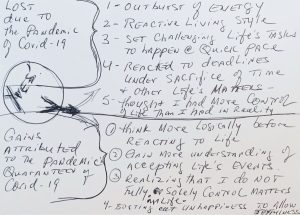 LOST
due to
the Pandemic
of Covid-19
1- OUTBURST OF ENERGY
2- REACTIVE LIVING STYLE
3- SET CHALLENGING LIFE'S TASKS
to happen @ QUICK PACE
4- REACTED TO DEADLINES
UNDER SACRIFICE OF TIME
& OTHER LIFE'S MATTERS
5- thought I had MORE CONTROL
OF LIFE than I had in REALITY
GAINS
ATTRIBUTED
to the PANDEMIC
QUARANTINE of
COVID-19
① think MORE LOGICALLY before
REACTING to LIFE
② GAIN MORE UNDERSTANDING OF
ACCEPTING LIFE'S EVENTS
③ REALIZING that I do NOT
fully, or solely CONTROL MATTERS
in LIFE
4- out UNHAPPINESS to ALLOW
HAPPINESS